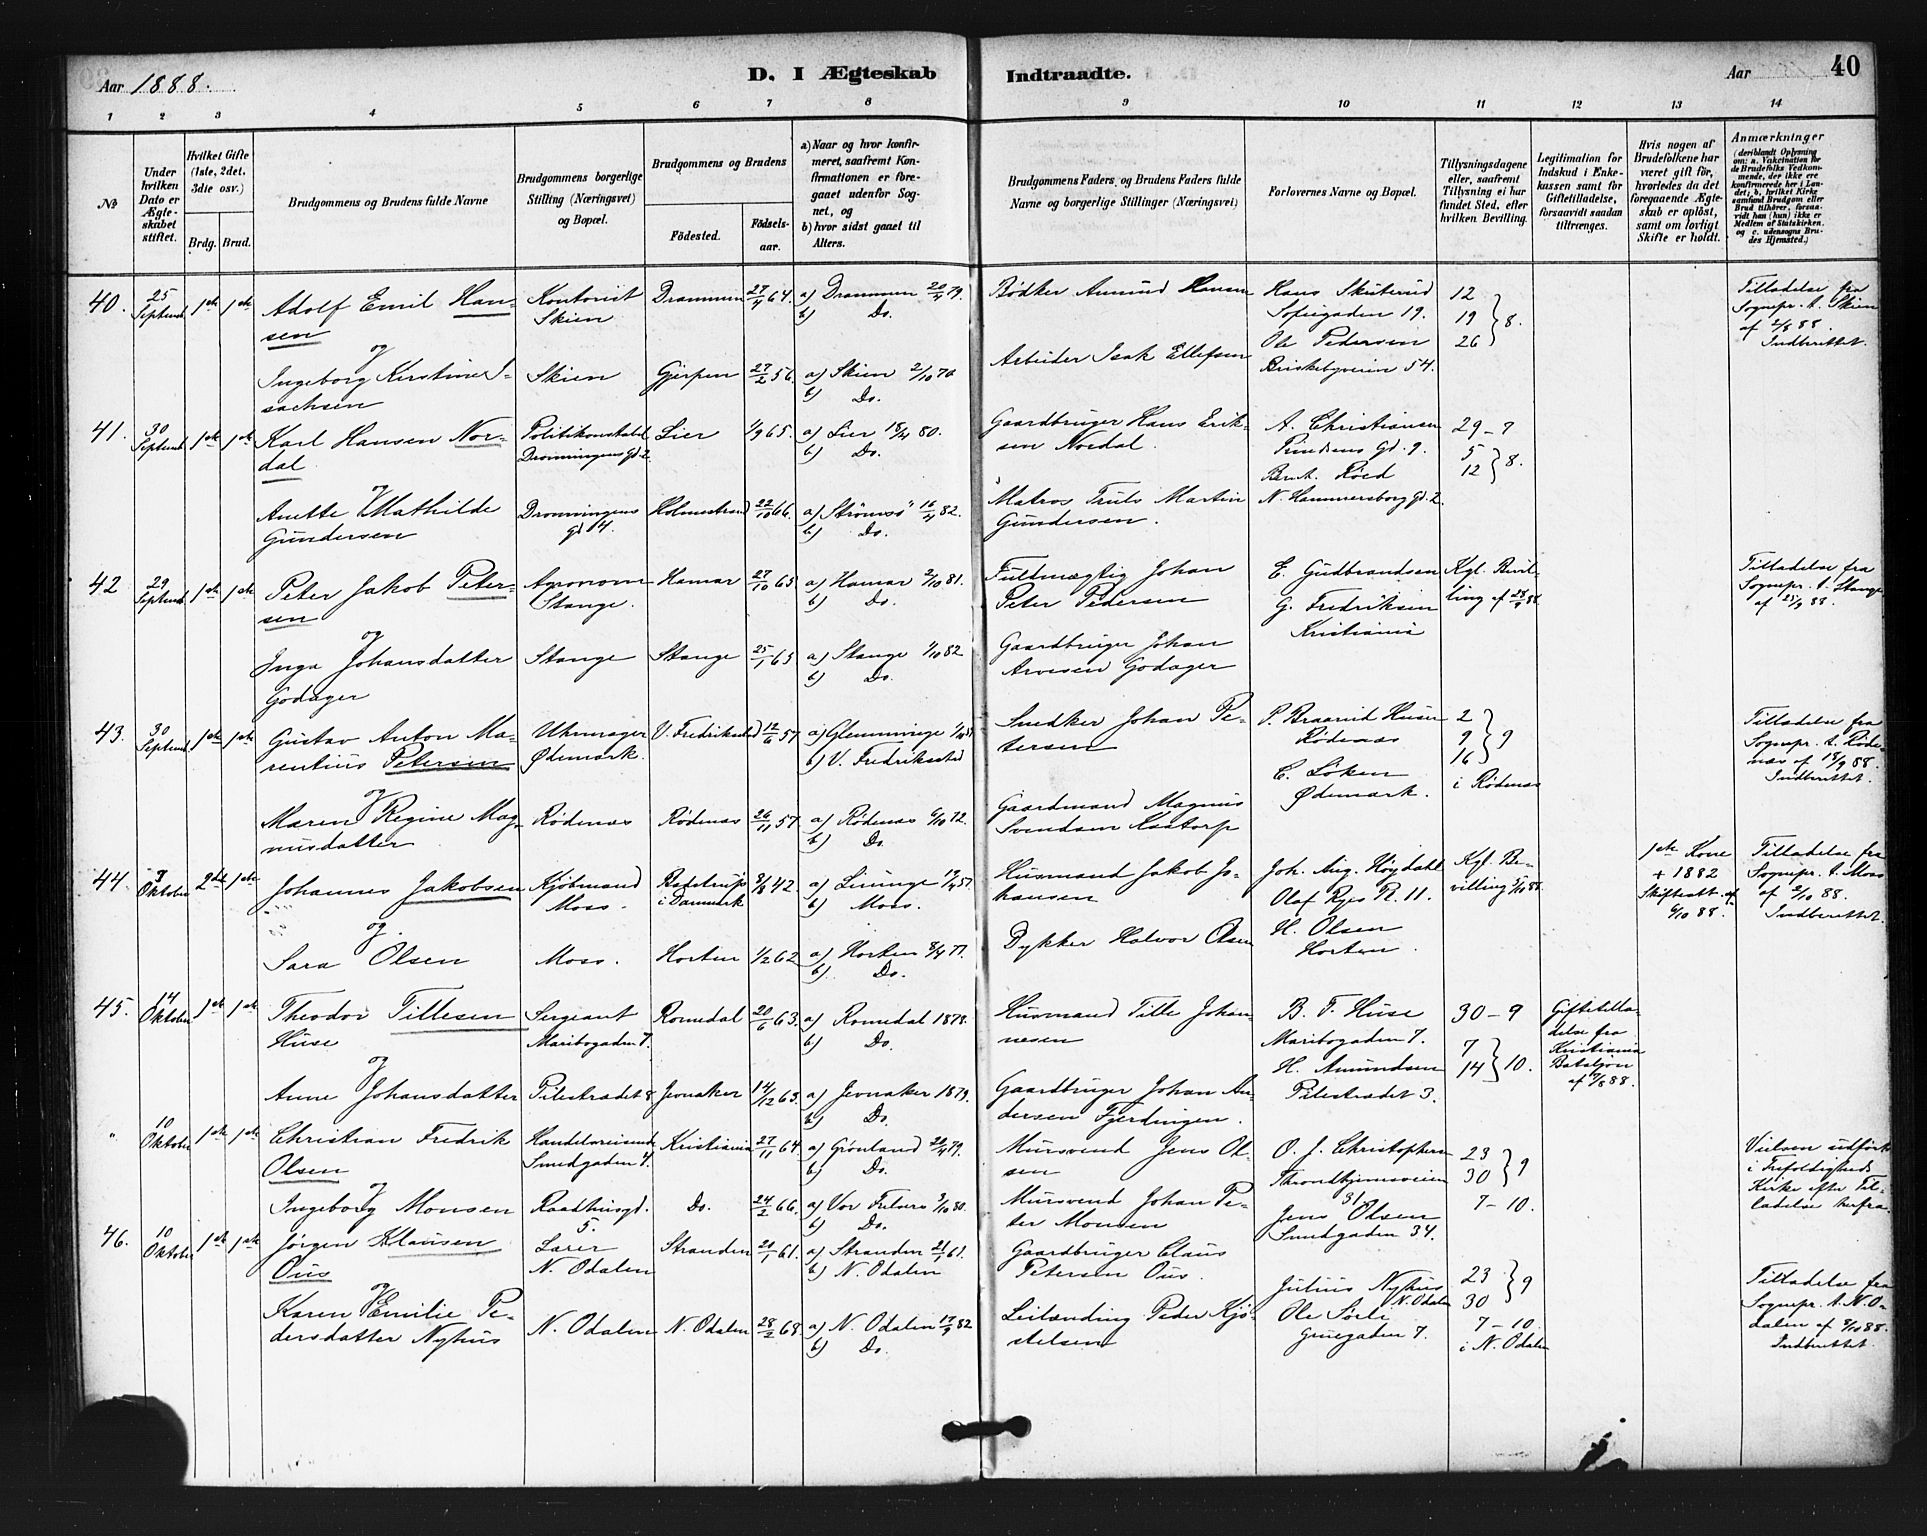 Aar 1888.
D. I Ægteskab Indtraadte.
Aar
40
1 2 3 4 5 6 7 8 9 10 11 12 13 14
№
Under hvilken Dato er Ægteskabet stiftet.
Hvilket Gifte (1ste, 2det, 3die osv.)
Brdg. Brud.
Brudgommens og Brudens fulde Navne
Brudgommens borgerlige Stilling (Næringsvei) og Bopæl.
Brudgommens og Brudens
Fødested.
Fødselsaar.
a) Naar og hvor konfirmeret, saafremt Konfirmationen er foregaaet udenfor Sognet, og
b) hvor sidst gaaet til Alters.
Brudgommens Faders og Brudens Faders fulde Navne og borgerlige Stillinger (Næringsvei)
Forlovernes Navne og Bopæl.
Tillysningsdagene eller, saafremt Tillysning ei har fundet Sted, efter hvilken Bevilling.
Legitimation for Indskud i Enkekassen samt for Giftetilladelse, forsaavidt saadan tiltrænges.
Hvis nogen af Brudefolkene har været gift før, hvorledes da det foregaaende Ægteskab er opløst, samt om lovligt Skifte er holdt.
Anmærkninger
(deriblandt Oplysning om: a. Vakcination for de Brudefolks Vedkommende, der ikke ere konfirmerede her i Landet; b. hvilket Kirkesamfund Brudgom eller Brud tilhører, forsaavidt han (hun) ikke er Medlem af Statskirken, og c. udensogns Brudes Hjemsted.)
40. 25 Septemb 1ste 1ste Adolf Emil Hansen Kontorist Skien Drammen 27/4 64. a) Drammen 20/4 79. b) Do. Bødker Amund Hansen Hans Skuterud Sofiegaden 19. 12 19 26 } 8. Tilladelse fra Sognepr. t. Skien af 2/8 88. Indberettet.
og
Ingeborg Kirstine Isachsen Skien Gjerpen 27/2 56. a) Skien 2/10 70 b) Do. Arbeider Isak Ellefsen Ole Pedersen Briskebyveien 54.
41. 30 Septemb 1ste 1ste Karl Hansen Nordal Politikonstabel Dronningens Gd. 2. Lier 1/9 65. a) Lier 18/4 80. b) Do. Gaardbruger Hans Eriksen Nordal. A. Christiansen Prindsens Gd. 9. 29-7 5 12 } 8.
og
Anette Mathilde Gundersen Dronningens gd 14. Holmestrand 22/10 66. a) Strømsø 16/4 82. b) Do. Matros Truls Martin Gundersen. Bernt. Røed N. Hammersborg gd. 2.
42 29 Septemb 1ste 1ste Peter Jakob Petersen Agronom Stange. Hamar 27/10 65 a) Hamar 2/10 81. b) Do. Fuldmægtig Johan Peter Pedersen E. Gudbrandsen G. Fredriksen Kristiania Kgl. Bevilling af 28/9 88. Tilladelse fra Sognepr. t. Stange af 25/9 88.
og
Inga Johansdatter Godager Stange Stange 25/1 65 a) Stange 1/10 82 b) Do. Gaardbruger Johan Arvesen Godager
43. 30 Septemb 1ste 1ste Gustav Anton Marentius Petersen Uhrmager Ødemark. V. Fredrikstad 12/6 57 a) Glemminge b) V. Fredrikstad Snedker Johan Petersen P. Braarud Husen Rødenæs 2 9 16 } 9 i Rødenæs Tilladelse fra Sognepr. t. Rødenæs af 18/9 88. Indberettet.
og
Maren Regine Magnusdatter Rødenæs Rødenæs 26/11 57. a) Rødenæs 6/10 72. b) Do. Gaardmand Magnus Svendsen Kaatorp C. Løken Ødemark.
44. Oktober 2det 1ste Johannes Jakobsen Kjøbmand Moss. i Danmark 8/8 42 b) Moss. Husmand Jakob Johansen Joh. Aug. Høydahl Olaf Ryes Pl. 11. Kgl. Bevilling 5/10 88 1ste Kone + 1882 Skifteatt. af 6/10 88. Tilladelse fra Sognepr. t. Moss af 2/10 88. Indberettet.
og.
Sara Olsen Moss. Horten 1/2 62 a) Horten 8/4 77. b) Do. Dykker Halvor Olsen H. Olsen Horten.
45. 14 Oktober 1ste 1ste Theodor Tillesen Huse Sergeant Maribogaden 7. Romedal 20/6 63. a) Romedal 1878. b) Do. Husmand Tille Johannesen B. T. Huse Maribogaden 7. 30-9 7 14 } 10. Giftetilladelse fra Kristiania Bataljon af 7/8 88.
og
Anne Johansdatter Pilestrædet 8 Jevnaker 14/12 63. a) Jevnaker 1879. b) Do. Gaardbruger Johan Andersen Fjerdingen. H. Amundsen Pilestrædet 3.
" 10 Oktober 1ste 1ste Christian Fredrik Olsen Handelsreisende Smedgaden 4. Kristiania 27/11 64. a) Grønland 20/4 79. b) Do. Mursvend Jens Olsen O. J. Christophersen Throndhjemsveien 31. 23 30 } 9 7-10. Vielsen udført i Trefoldigheds Kirke efter Tilladelse herfra.
og
Ingeborg Monsen Raadhusgd. 5. Do. 24/2 66. a) Vor Frelsers 3/10 80. b) Do. Mursvend Johan Peter Monsen Jens Olsen Smedgaden 34.
46. 10 Oktober 1ste 1ste Jørgen Klausen Ous Lærer N. Odalen Stranden 20/1 61. a) Stranden 21/1 61. b) N. Odalen Gaardbruger Claus Petersen Ous. Julius Nyhus N. Odalen 23 30 } 9 7-10. i N. Odalen Tilladelse fra Sognepr. t. N. Odalen af 8/10 88. Indberettet.
og
Karen Emilie Pedersdatter Nyhus N. Odalen N. Odalen 28/2 68. a) N. Odalen 17/9 82 b) Do. Leilænding Peder Kjøstelsen Ole Sørli Gruegaden 7.